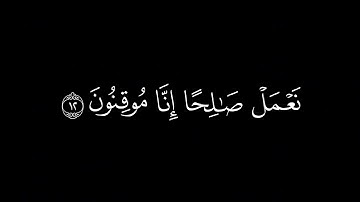 نَعْمَلْ صَـٰلِحًا إِنَّا مُوقِنُونَ ١٢